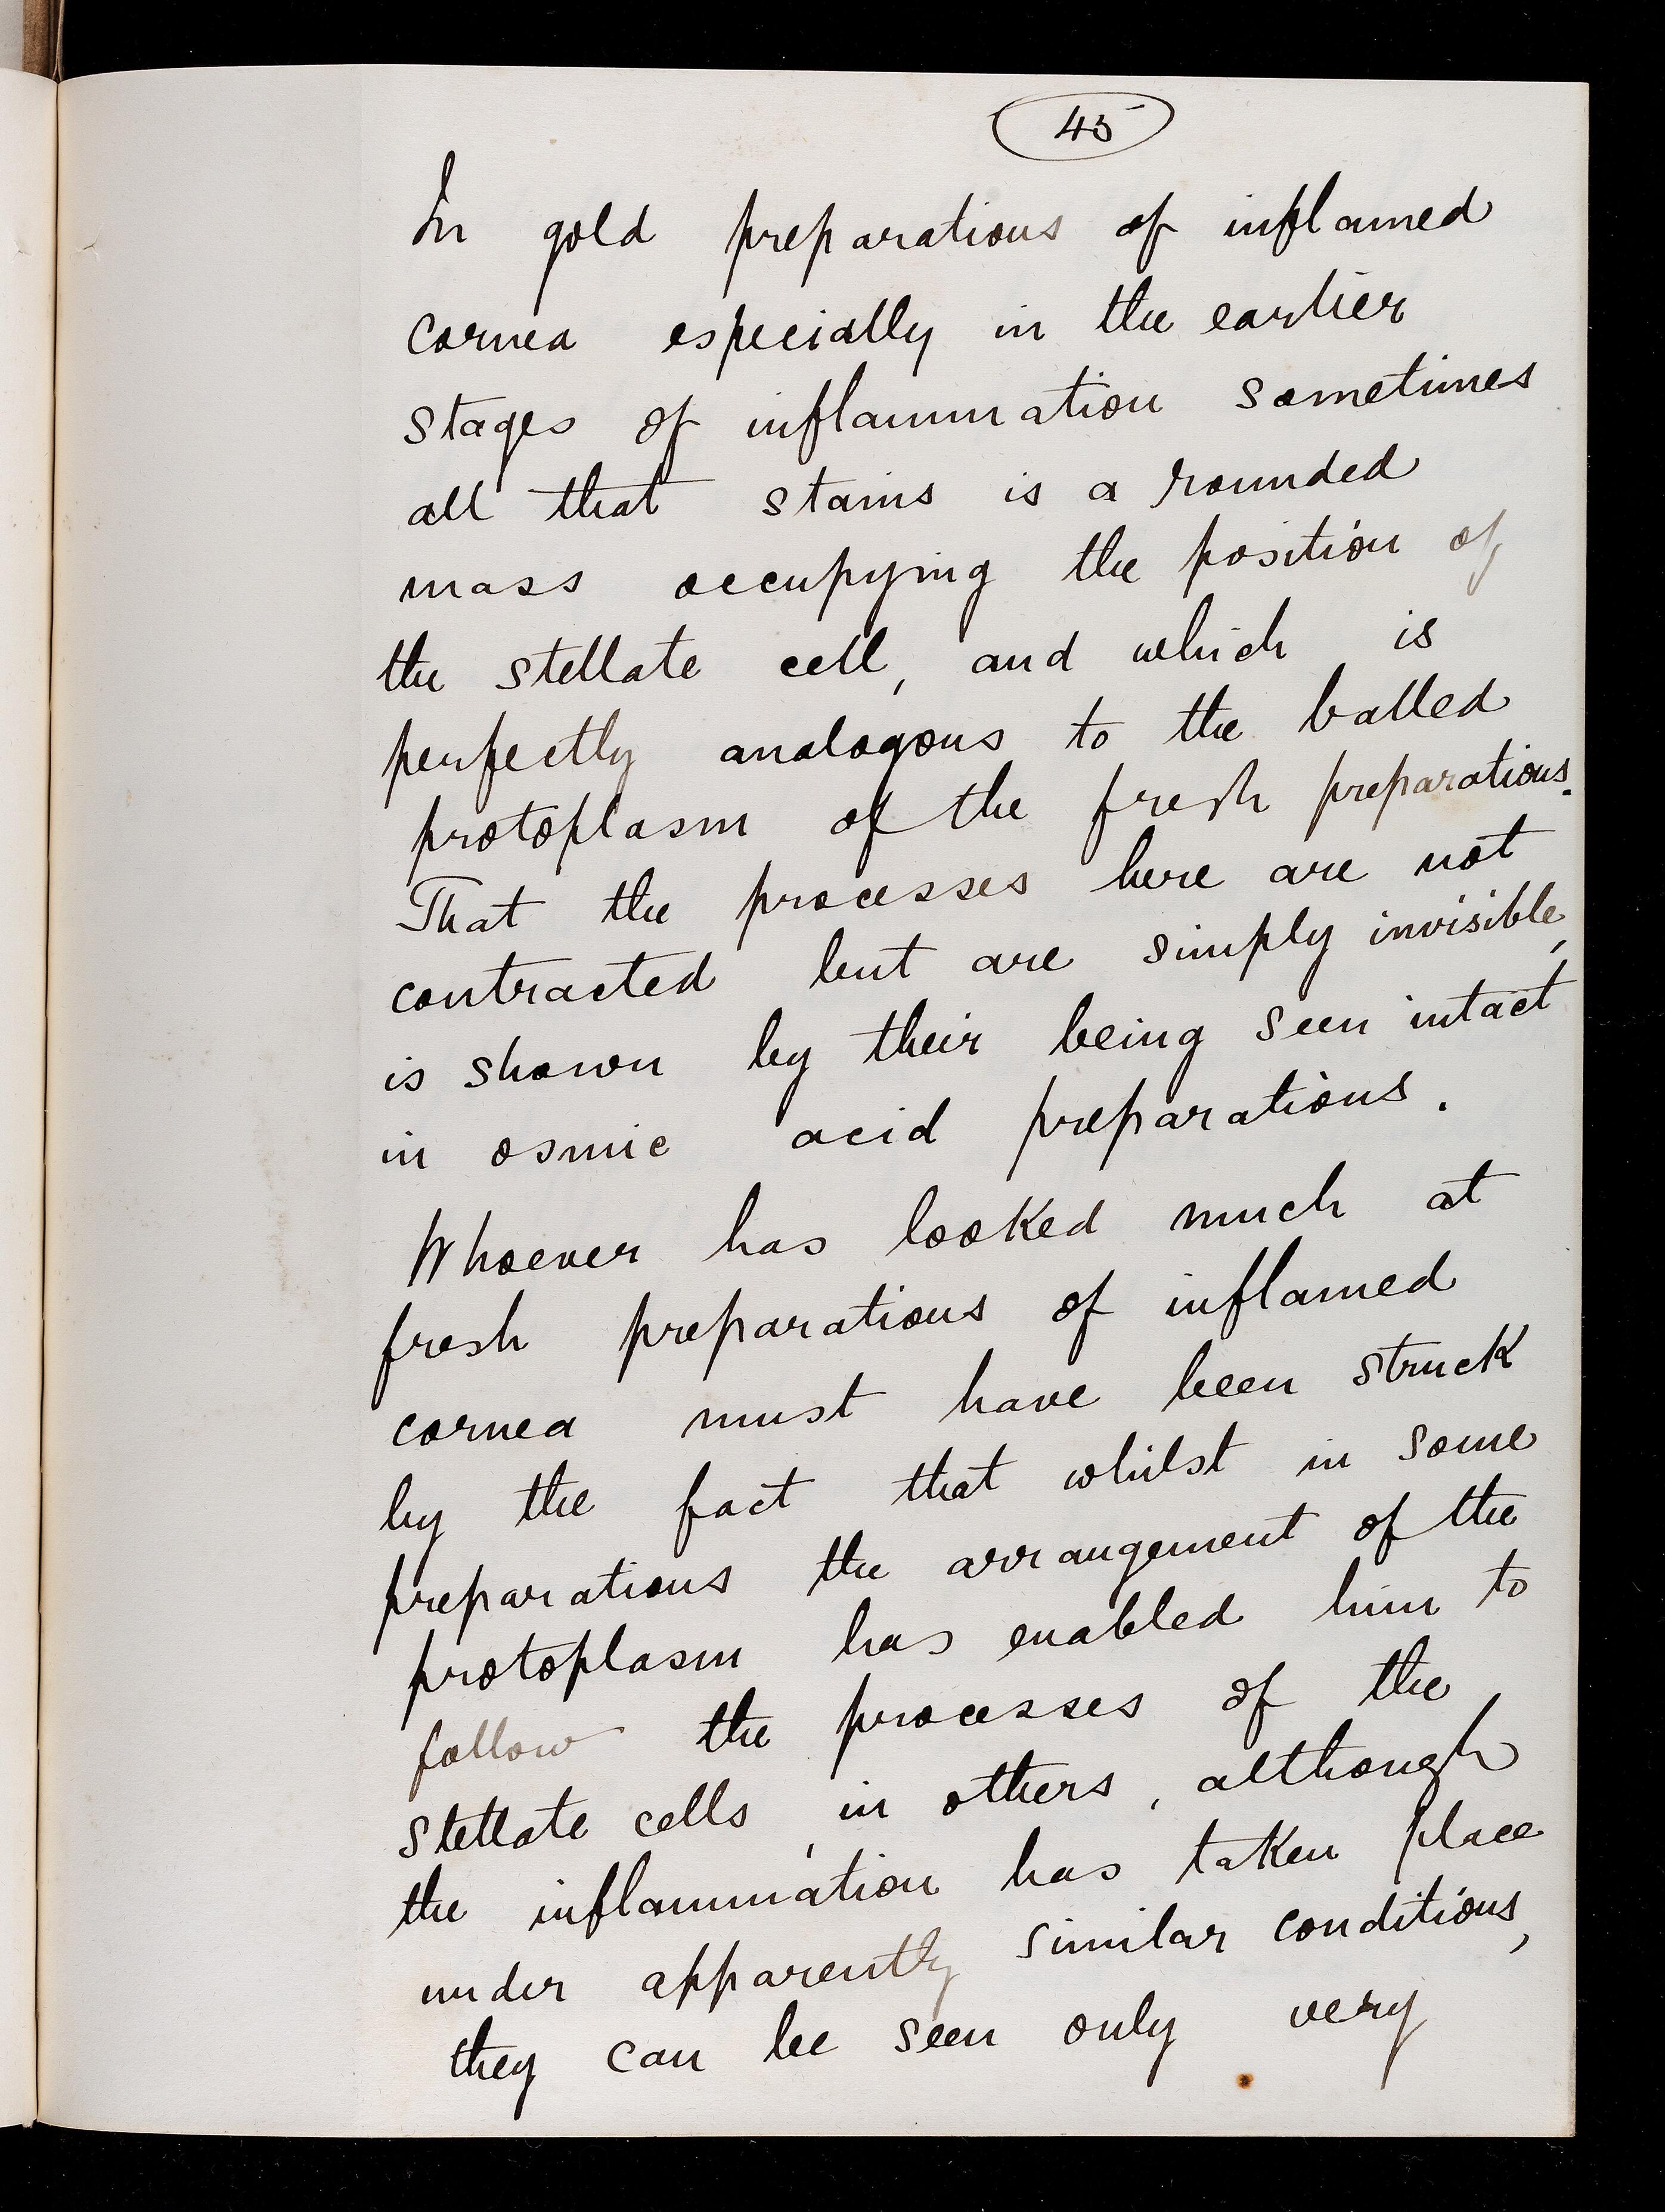 45
In gold preparations of inflamed
cornea especially in the earlier
stages of inflammation sometimes
all that stains is a rounded
mass occupying the position of
the stellate cell, and which is
perfectly analogous to the balled
protoplasm of the fresh preparations.
That the processes here are not
contracted but are simply invisible,
is shown by their being seen intact
in osmic acid preparations.
Whoever has looked much at
fresh preparations of inflamed
cornea must have been struck
by the fact that whilst in some
preparations the arrangement of the
protoplasm has enabled him to
follow the processes of the
stellate cells, in others, although
the inflammation has taken place
under apparently similar conditions,
they can be seen only very